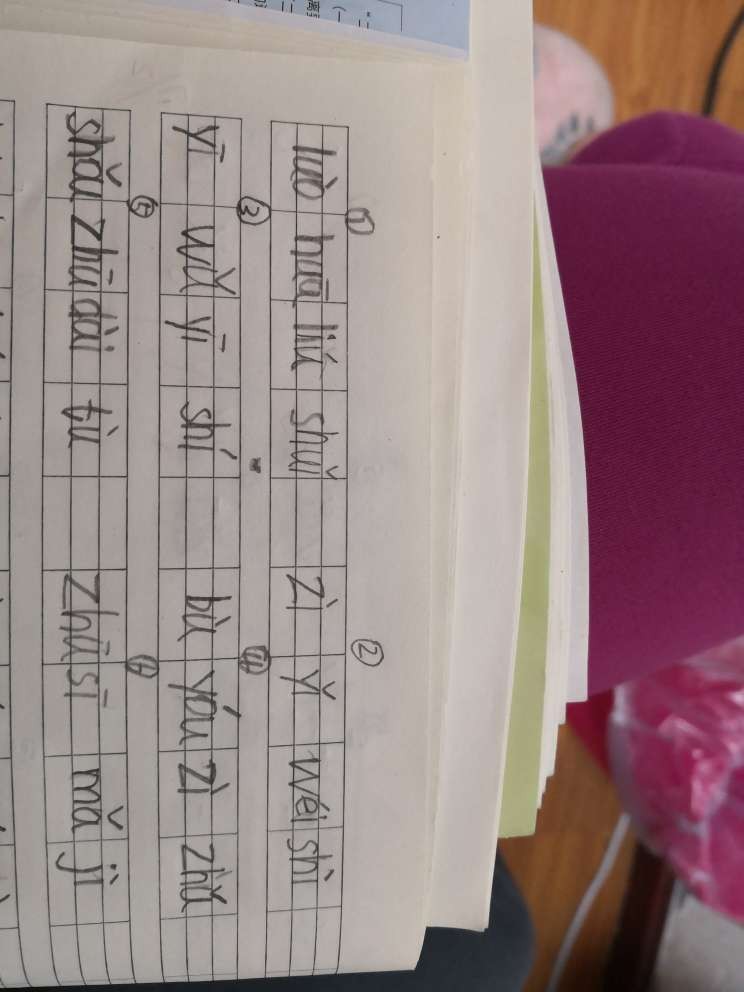 ① ②
luò huā liú shuǐ zì yǐ wéi shì
③ ④
yī wǔ yī shí bù yóu zì zhǔ
⑤
shǒu zhū dài tù zhū sī mǎ jì